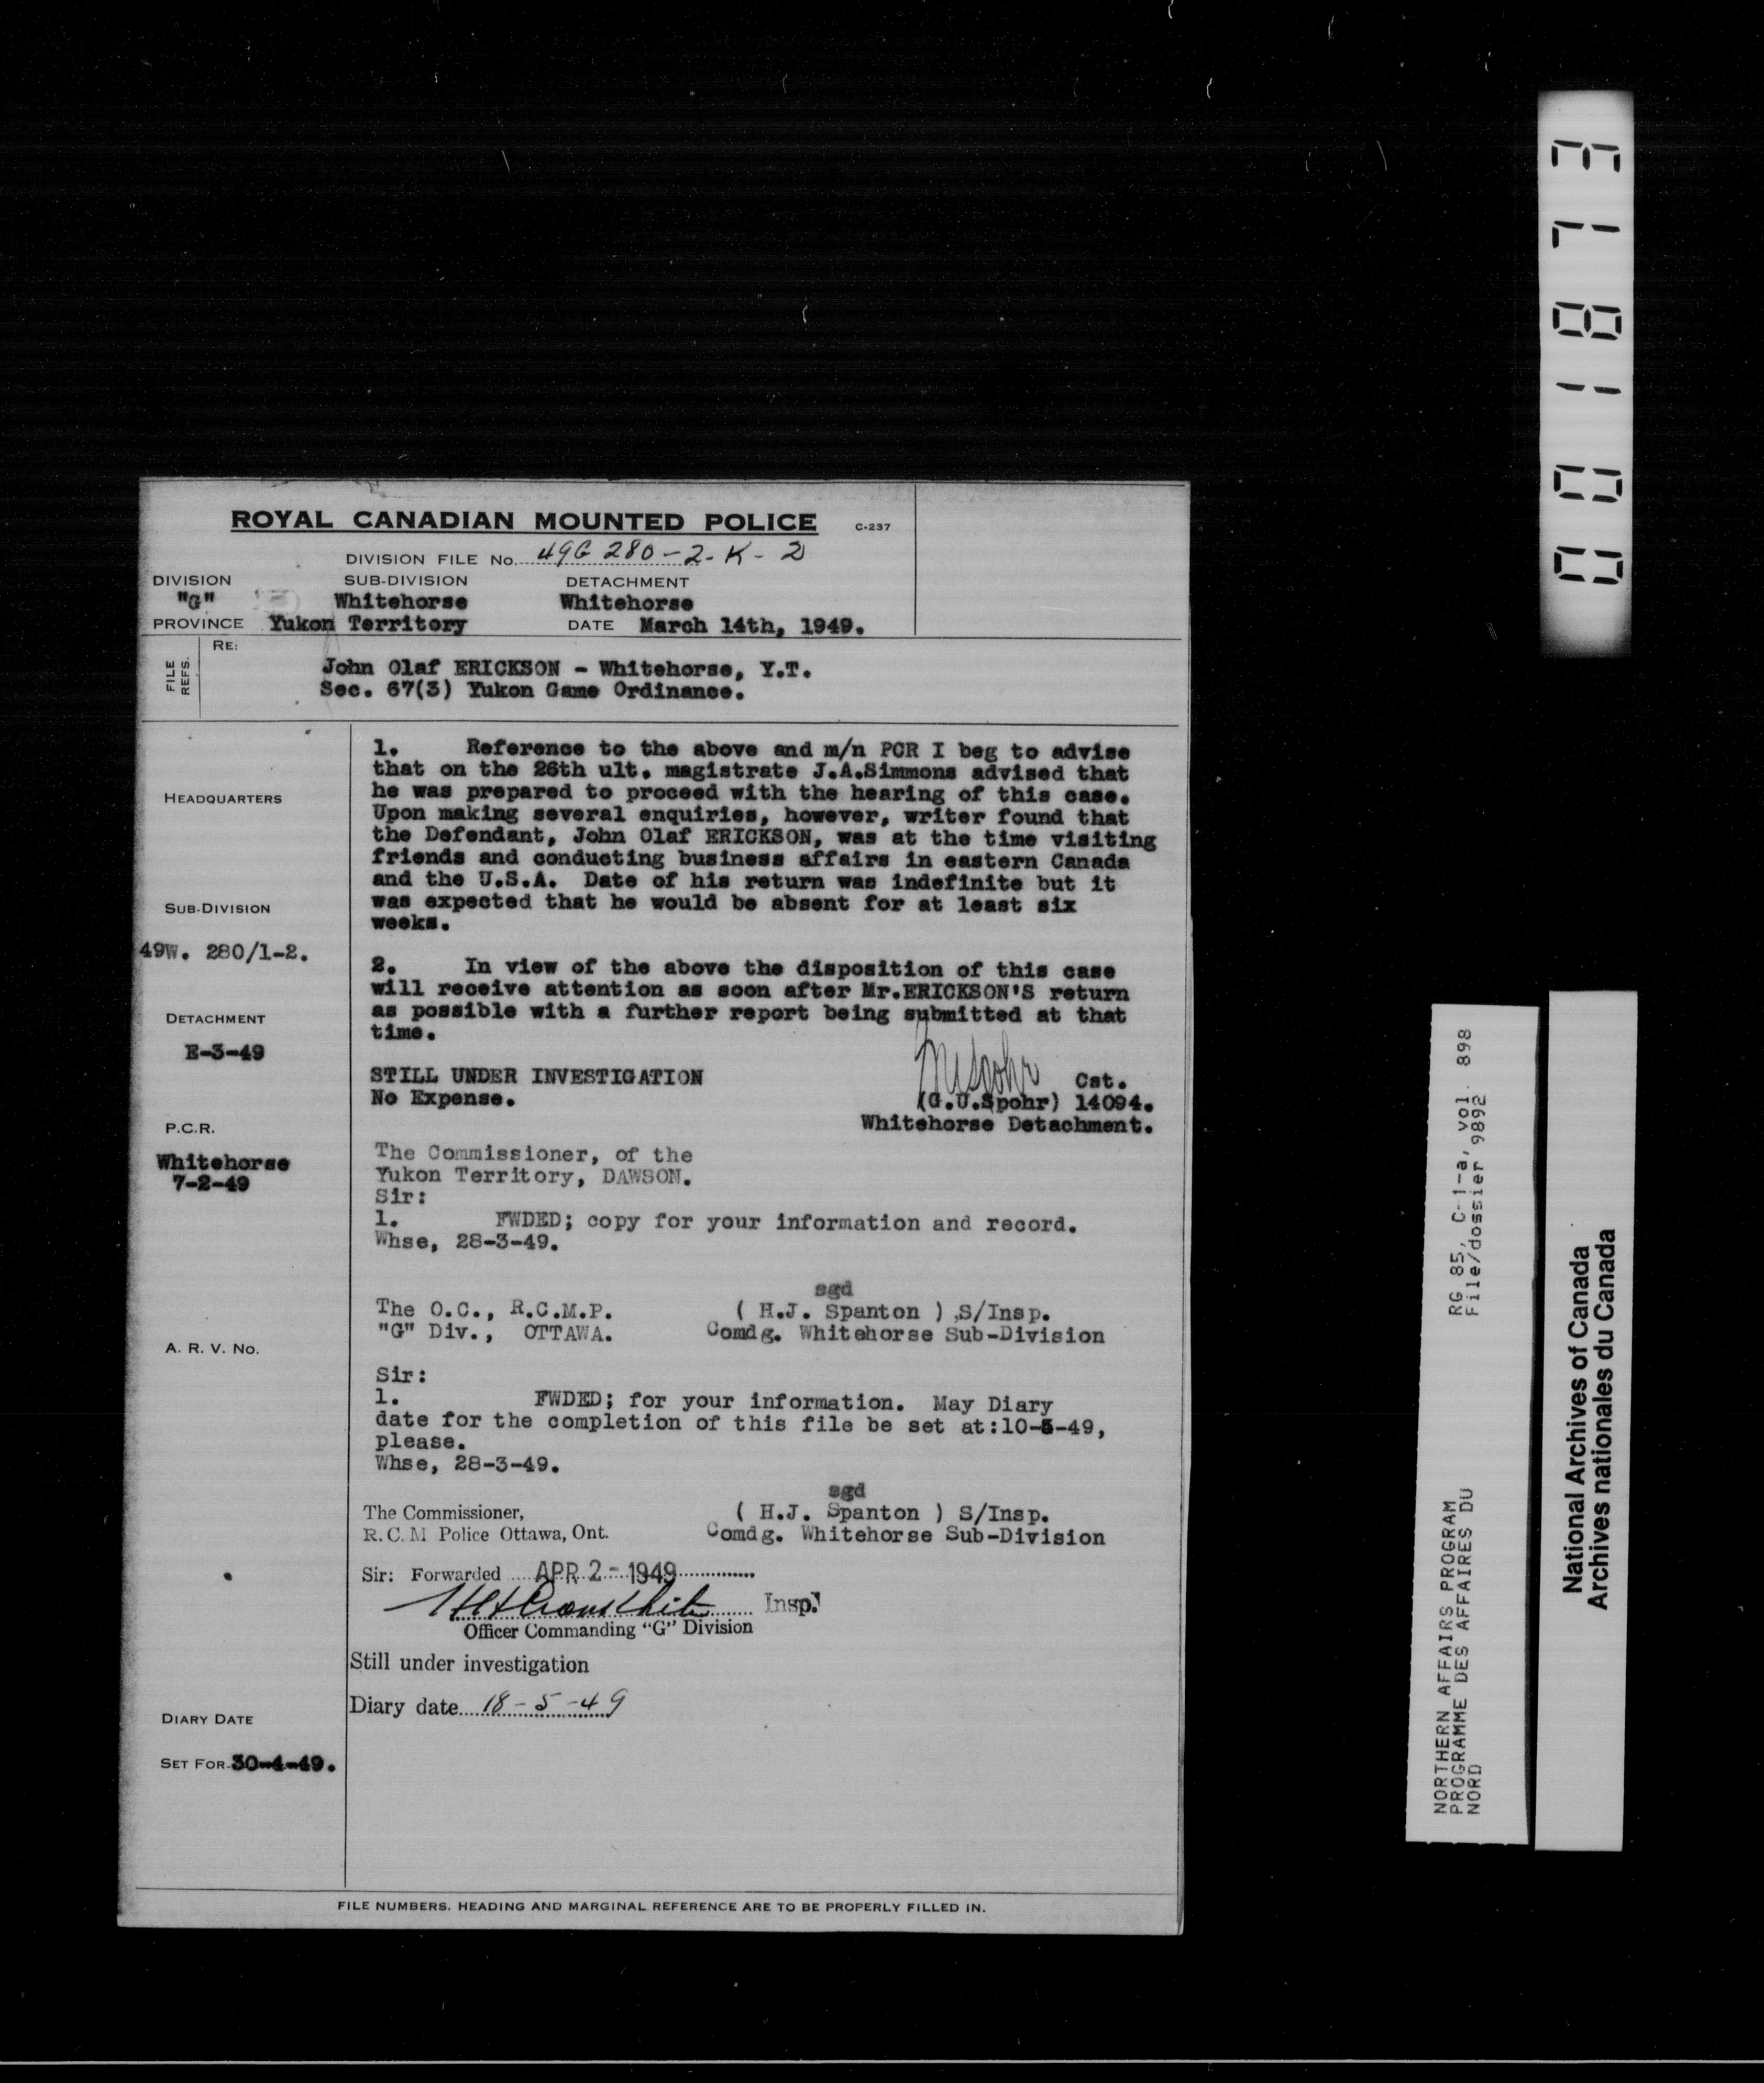 ROYAL CANADIAN MOUNTED POLICE C-237
DIVISION FILE No. 49G 280-2-K-2
DIVISION SUB-DIVISION DETACHMENT
"G" Whitehorse Whitehorse
PROVINCE Yukon Territory DATE March 14th, 1949.
FILE REFS.
RE:
John Olaf ERICKSON - Whitehorse, Y.T.
Sec. 67(3) Yukon Game Ordinance.
HEADQUARTERS
SUB-DIVISION
49W. 280/1-2.
DETACHMENT
E-3-49
P.C.R.
Whitehorse
7-2-49
A. R. V. No.
DIARY DATE
SET FOR 30-4-49.
1. Reference to the above and m/n PCR I beg to advise
that on the 26th ult. magistrate J.A.Simmons advised that
he was prepared to proceed with the hearing of this case.
Upon making several enquiries, however, writer found that
the Defendant, John Olaf ERICKSON, was at the time visiting
friends and conducting business affairs in eastern Canada
and the U.S.A. Date of his return was indefinite but it
was expected that he would be absent for at least six
weeks.
2. In view of the above the disposition of this case
will receive attention as soon after Mr.ERICKSON'S return
as possible with a further report being submitted at that
time.
STILL UNDER INVESTIGATION Cst.
No Expense. (G.U.Spohr) 14094.
Whitehorse Detachment.
The Commissioner, of the
Yukon Territory, DAWSON.
Sir:
1. FWDED; copy for your information and record.
Whse, 28-3-49.
sgd
The O.C., R.C.M.P. ( H.J. Spanton ) S/Insp.
"G" Div., OTTAWA. Comdg. Whitehorse Sub-Division
Sir:
1. FWDED; for your information. May Diary
date for the completion of this file be set at:10-5-49,
please.
Whse, 28-3-49.
sgd
The Commissioner, ( H.J. Spanton ) S/Insp.
R.C.M Police Ottawa, Ont. Comdg. Whitehorse Sub-Division
Sir: Forwarded APR 2 - 1949
Insp.
Officer Commanding "G" Division
Still under investigation
Diary date 18-5-49
FILE NUMBERS, HEADING AND MARGINAL REFERENCE ARE TO BE PROPERLY FILLED IN.
001873
RG 85, C-1-a, vol. 898
File/dossier 9892
NORTHERN AFFAIRS PROGRAM
PROGRAMME DES AFFAIRES DU
NORD
National Archives of Canada
Archives nationales du Canada